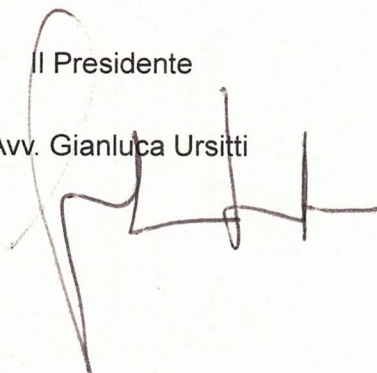 Il Presidente
Avv. Gianluca Ursitti